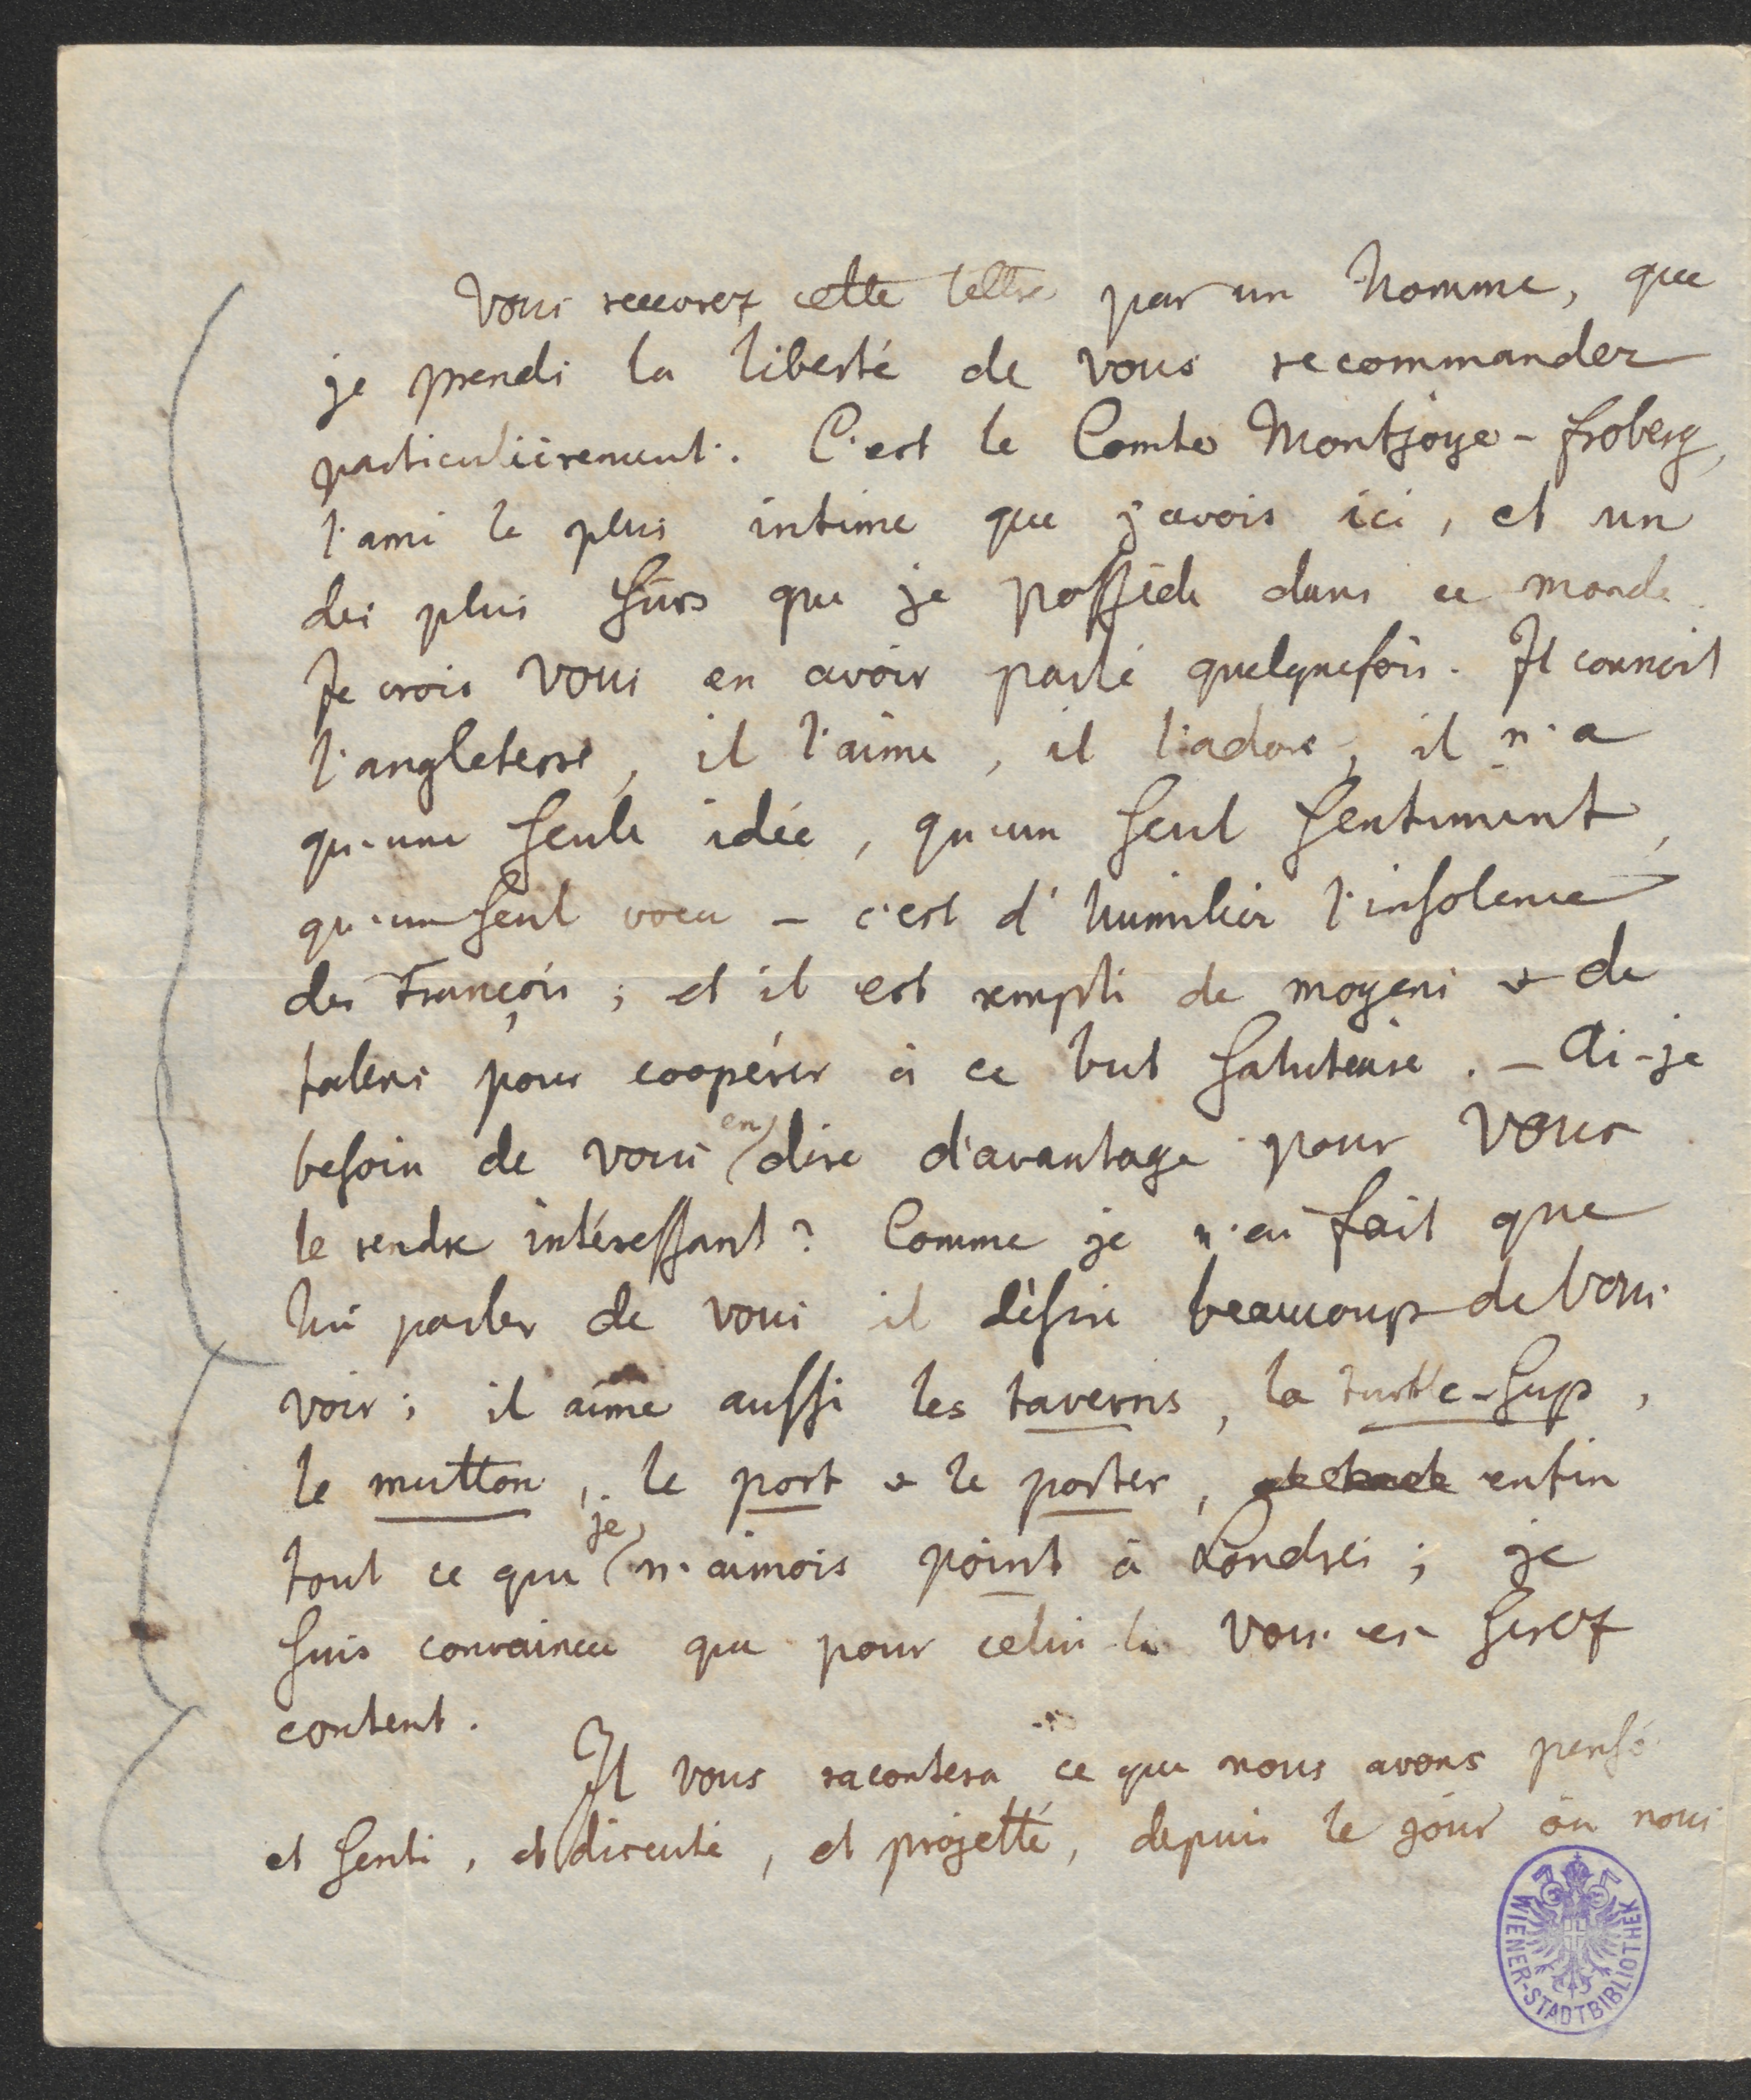 Vous recevrez cette lettre par un homme, que
je prends la liberté de vous recommander
particulièrement. C'est le Comte Montjoye-Froberg,
l'ami le plus intime que j'avois ici, et un
des plus sûrs que je possède dans ce monde.
Je crois vous en avoir parlé quelquefois. Il connoit
l'angleterre, il l'aime, il l'adore, il n'a
qu'une seule idée, qu'un seul sentiment,
qu'un seul voeu – c'est d'humilier l'insolence
des François ; et il est rempli de moyens & de
talens pour coopérer à ce but salutaire. – Ai-je
besoin de vous en dire d'avantage pour vous
le rendre intéressant ? Comme je n'ai fait que
lui parler de vous il désire beaucoup de vous
voir ; il aime aussi les taverns, la turtle-sup,
le mutton, le port & le porter, enfin
tout ce que je n'aimois point à Londres ; je
suis convaincu que pour celui-là vous en serez
content.
Il vous racontera ce que nous avons pensé
et senti, et discuté, et projetté, depuis le jour où nous
WIENER-STADTBIBLIOTHEK